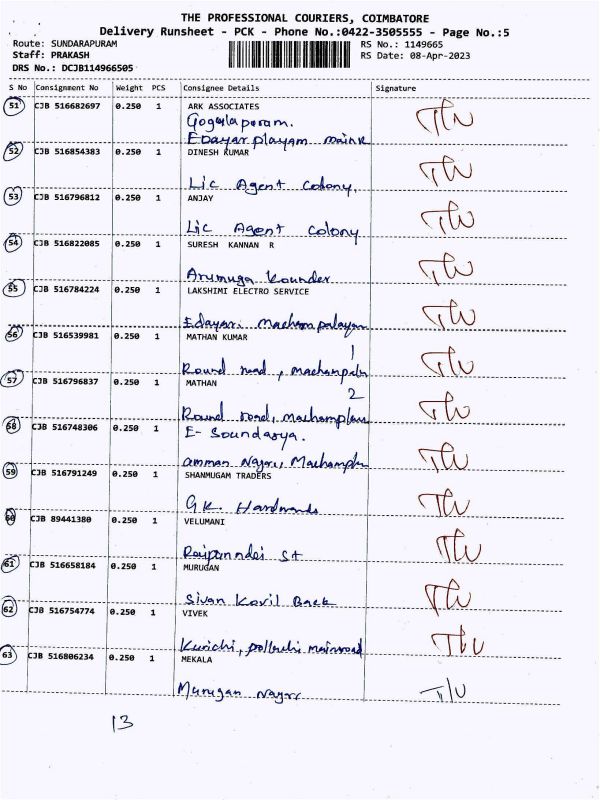 THE PROFESSIONAL COURIERS, COIMBATORE
Delivery Runsheet - PCK - Phone No.:0422-3505555 - Page No.:5
Route: SUNDARAPURAM RS No.: 1149665
Staff: PRAKASH RS Date: 08-Apr-2023
DRS No.: DCJB114966505
S No Consignment No Weight PCS Consignee Details Signature
51 CJB 516682697 0.250 1 ARK ASSOCIATES
Gogulapuram.
Edayarplayam main R
52 CJB 516854383 0.250 1 DINESH KUMAR
Lic Agent Colony.
53 CJB 516796812 0.250 1 ANJAY
Lic Agent Colony
54 CJB 516822085 0.250 1 SURESH KANNAN R
Arumuga Kounder
55 CJB 516784224 0.250 1 LAKSHIMI ELECTRO SERVICE
56 CJB 516539981 0.250 1 MATHAN KUMAR
1
Round road,
57 CJB 516796837 0.250 1 MATHAN
2
Round road,
58 CJB 516748306 0.250 1 E- Soundarya.
amman Nagar,
59 CJB 516791249 0.250 1 SHANMUGAM TRADERS
G.K.
60 CJB 89441380 0.250 1 VELUMANI
St
61 CJB 516658184 0.250 1 MURUGAN
Sivan Kovil Back
62 CJB 516754774 0.250 1 VIVEK
Kurichi, pollachi mainroad
63 CJB 516806234 0.250 1 MEKALA
Murugan Nagar
13